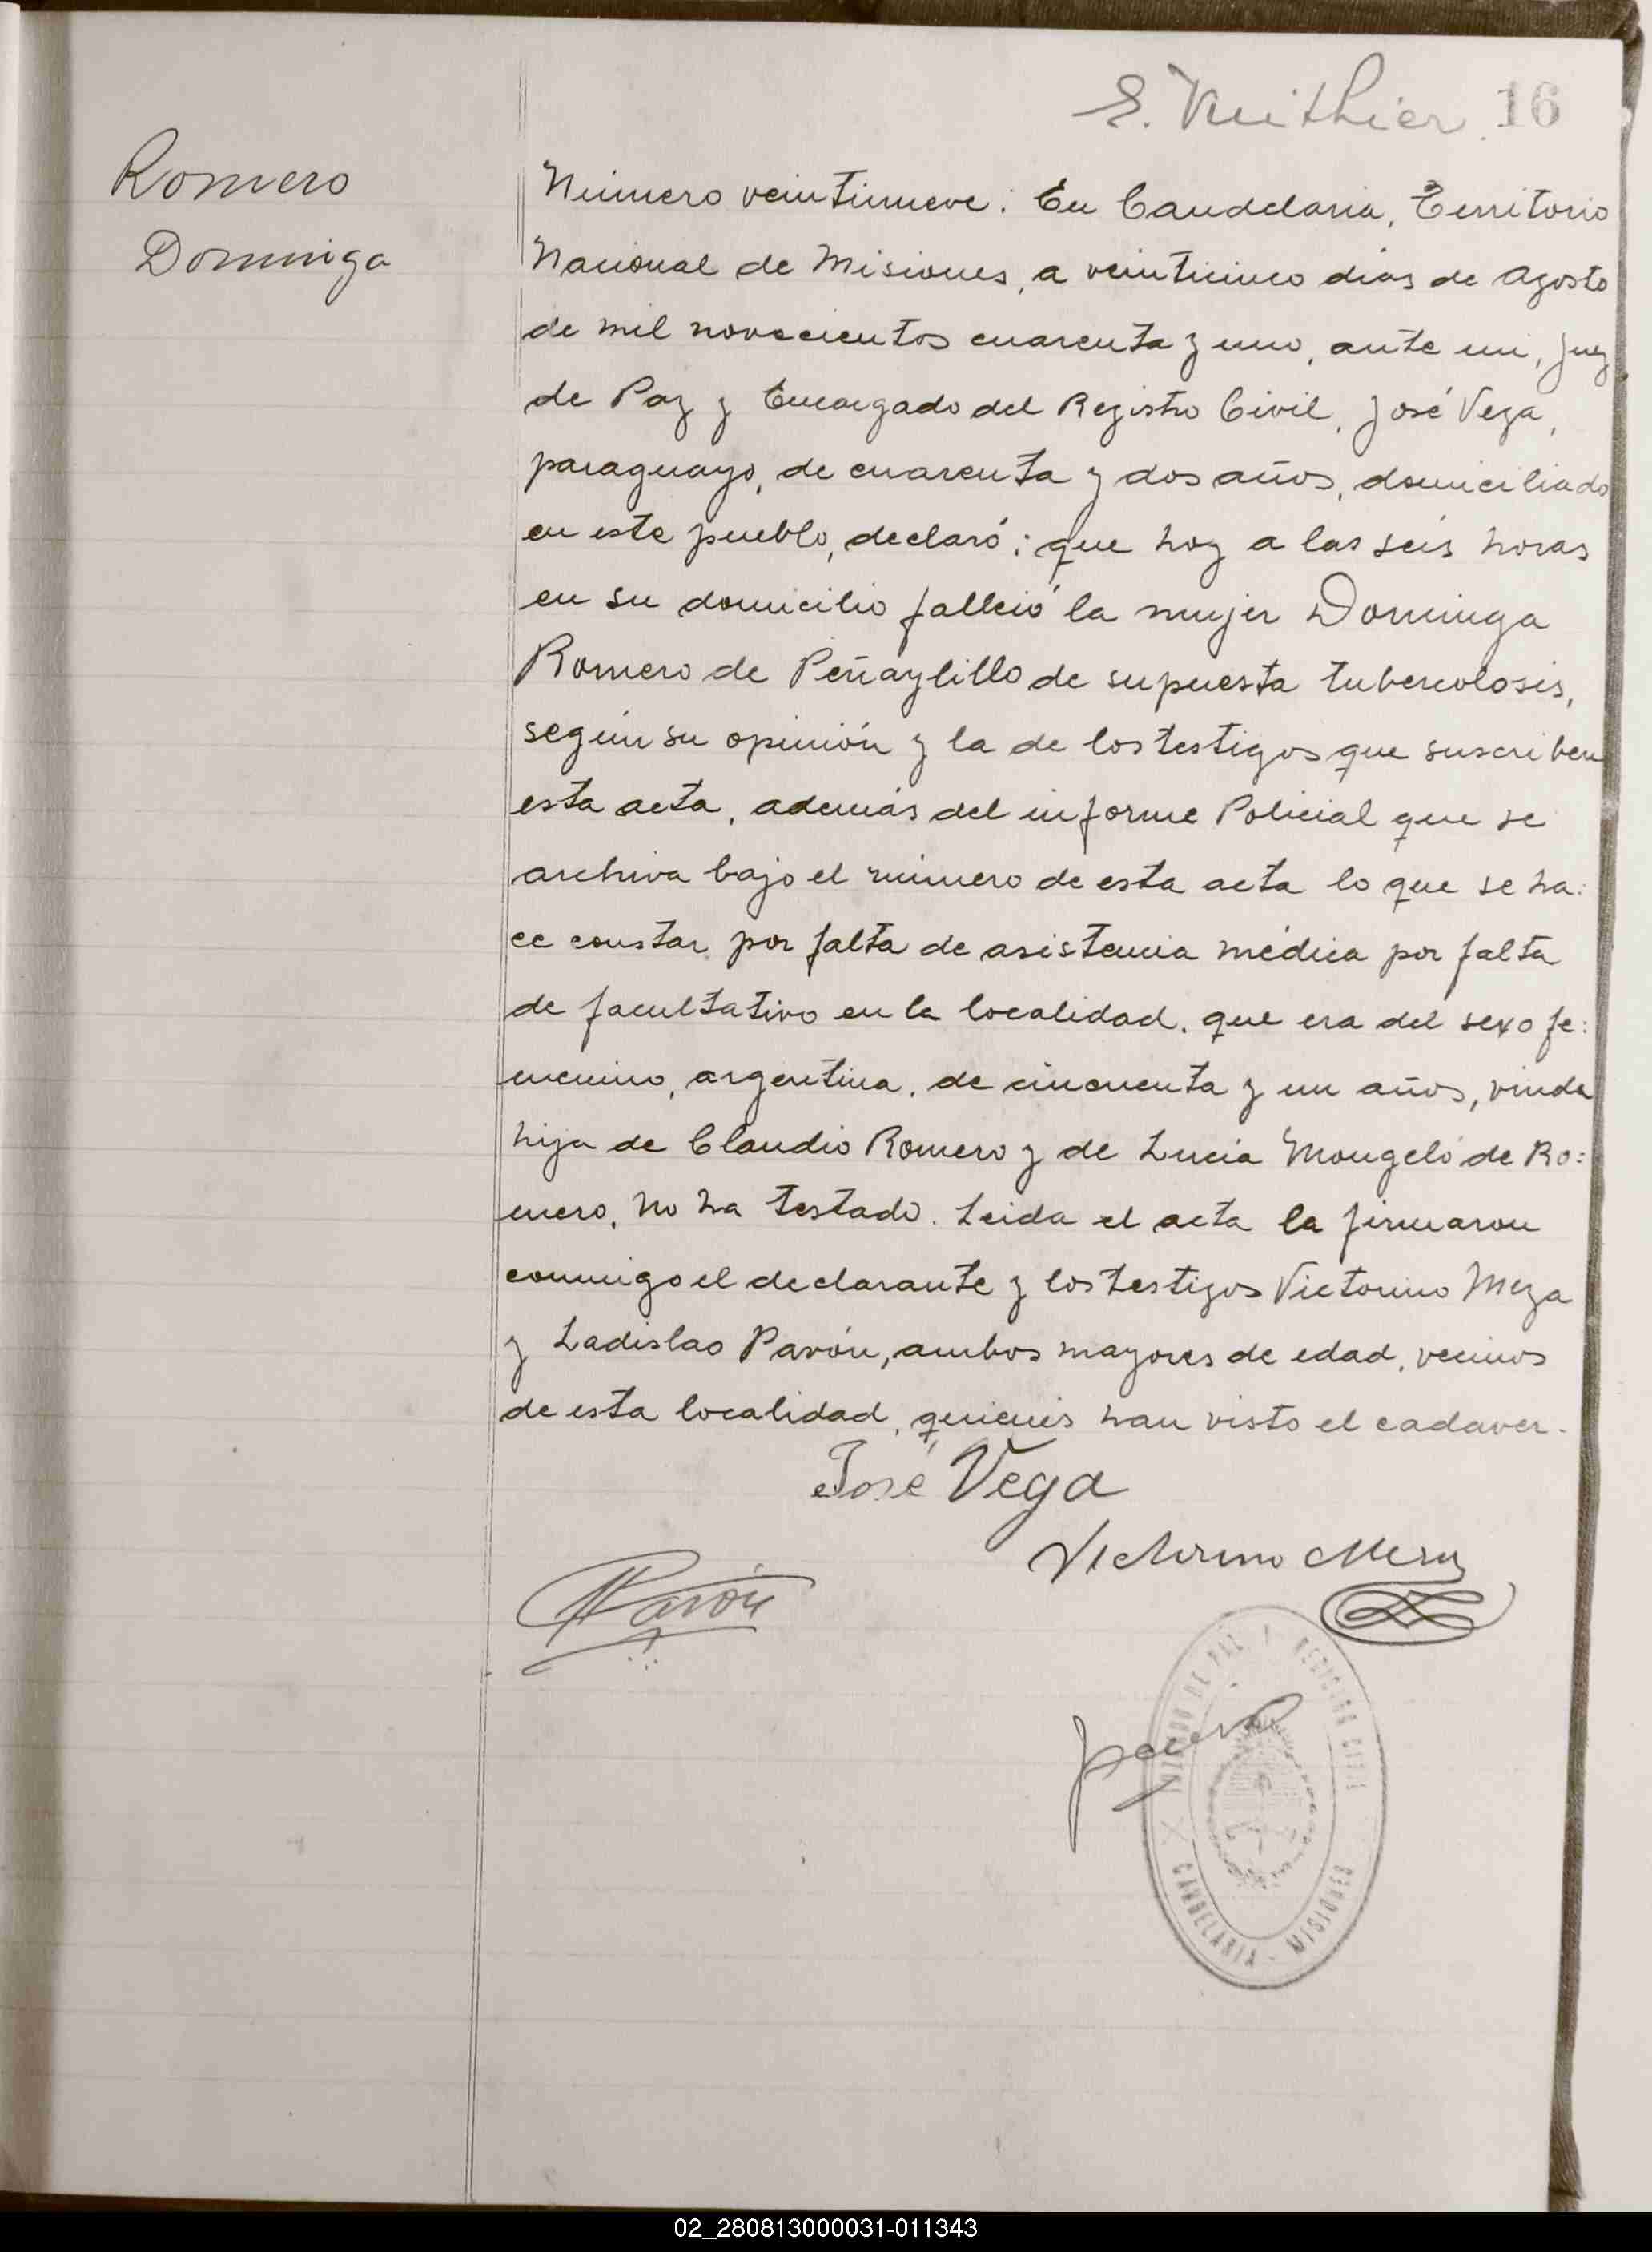 16
Romero
Dominga
Número veintinueve: En Candelaria, Territorio
Nacional de Misiones, a veinticinco dias de Agosto
de mil novecientos cuarenta y uno, ante mi, Juez
de Paz y Encargado del Registro Civil, José Vega,
paraguayo, de cuarenta y dos años, domiciliado
en este pueblo, declaró: que hoy a las seis horas
en su domicilio falleció la mujer Dominga
Romero de de supuesta tubercolosis,
según su opinión y la de los testigos que suscriben
esta acta, además del informe Policial que se
archiva bajo el número de esta acta lo que se ha:
ce constar por falta de asistencia médica por falta
de facultativo en la localidad. que era del sexo fe:
menino, argentina, de cincuenta y un años, viuda
hija de Claudio Romero y de Lucia Mongeló de Ro:
mero, no ha testado. Leida el acta la firmaron
conmigo el declarante y los testigos Victorino Meza
y Ladislao Pavón, ambos mayores de edad, vecinos
de esta localidad, quienes han visto el cadaver.
José Vega
Victorino Meza
Pavón
JUZGADO DE PAZ Y REGISTRO CIVIL
CANDELARIA - MISIONES
02_280813000031-011343